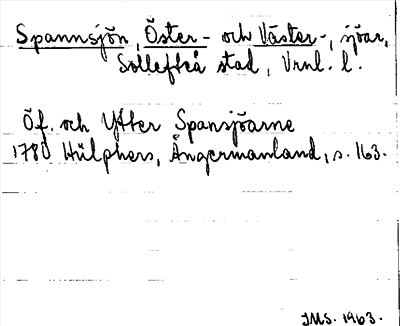 Spannsjön, Öster- och Väster-, sjöar,
Sollefteå stad, Vrnl. l.
Öf. och Ytter Spansjöarne
1780 Hülphers, Ångermanland, s. 163.
JMS. 1963.